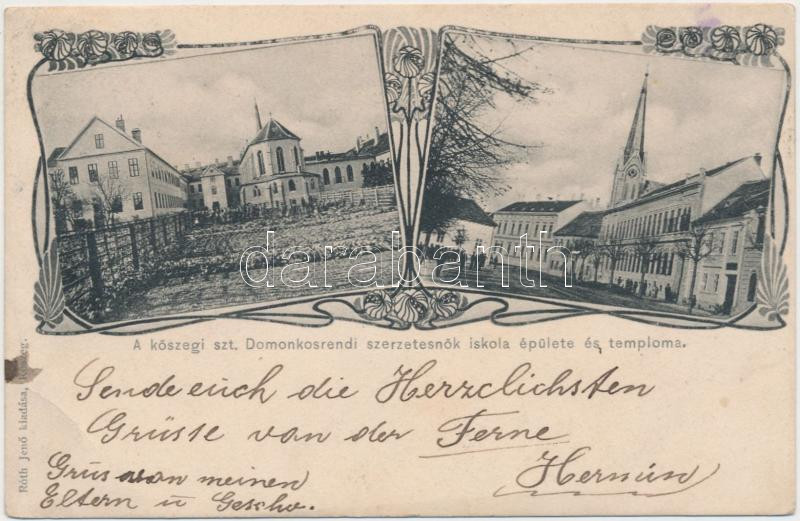 A kőszegi szt. Domonkosrendi szerzetesnők iskola épülete és temploma.
Sende euch die Herzclichsten
Grüsse van der Ferne
Grus van meinen
Eltern u Geschw.
Róth Jenő kiadása,
darabanth